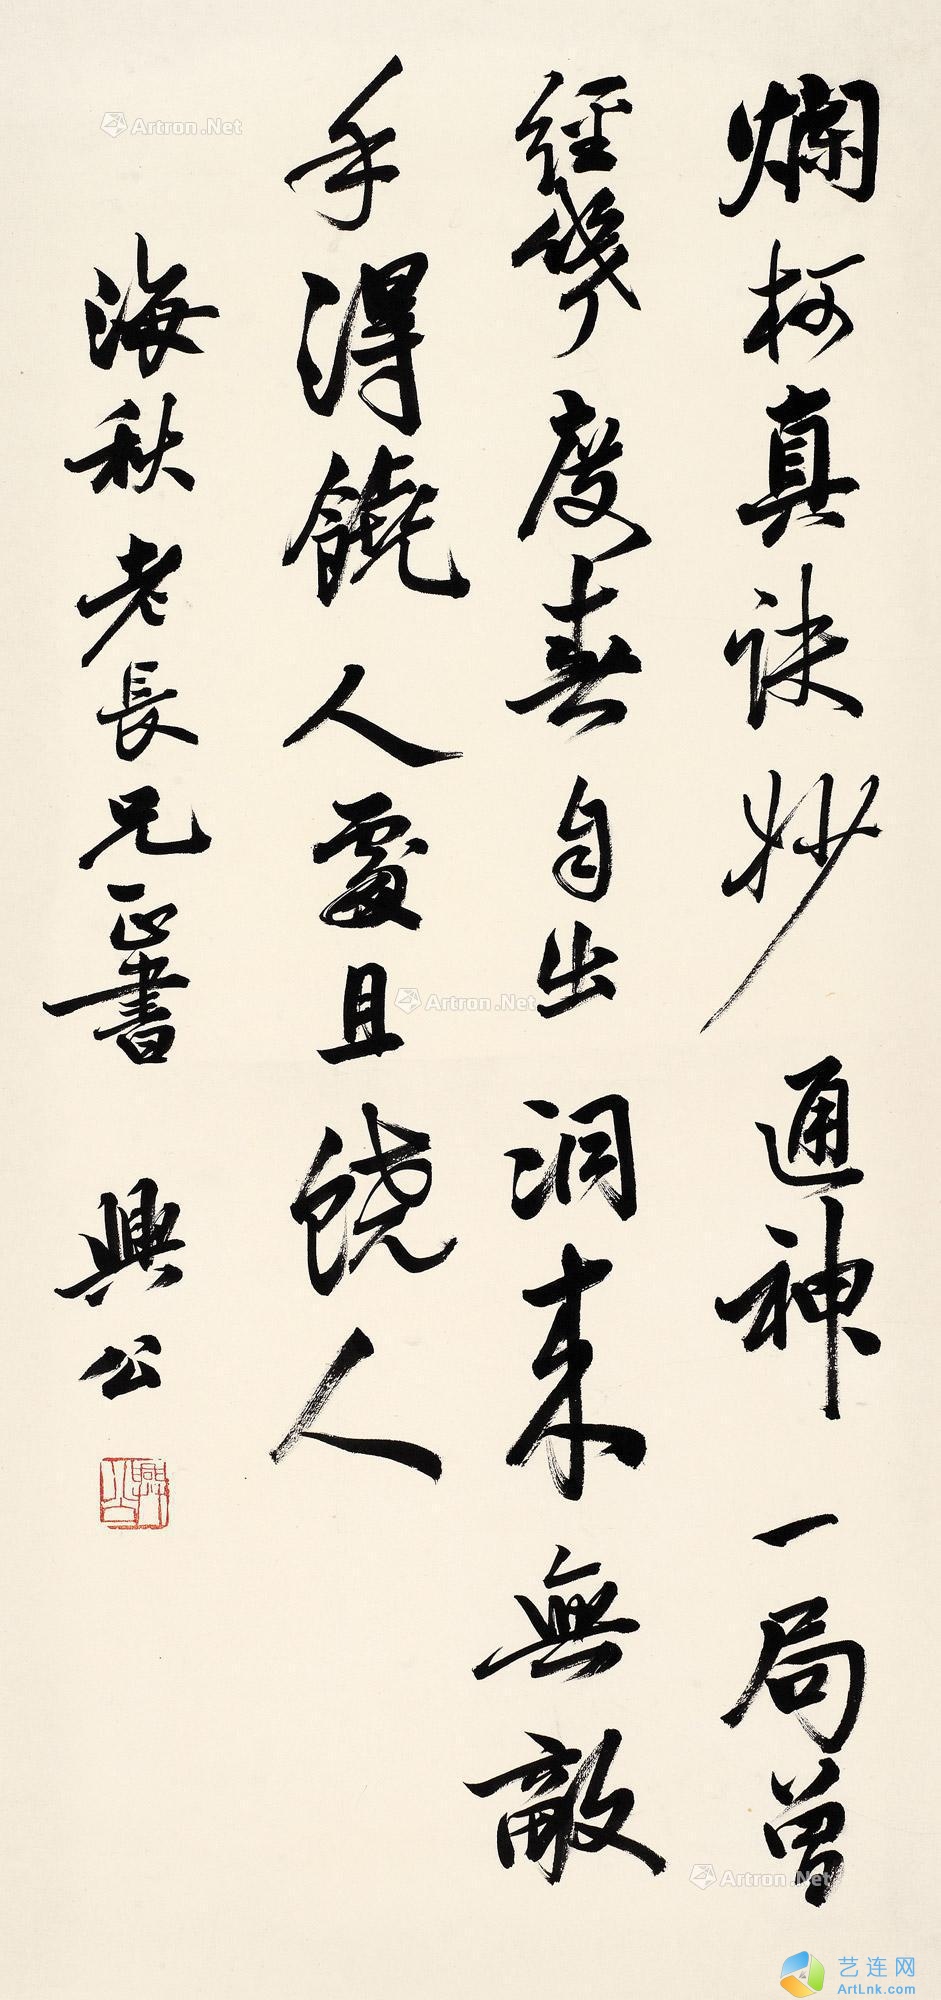 爛柯真訣妙通神一局曾
經幾度春自出洞来無敵
手得饒人處且饒人
海秋老長兄正書 興公
興公
Artron.Net
Artron.Net
Artron.Net
艺连网
ArtLnk.com